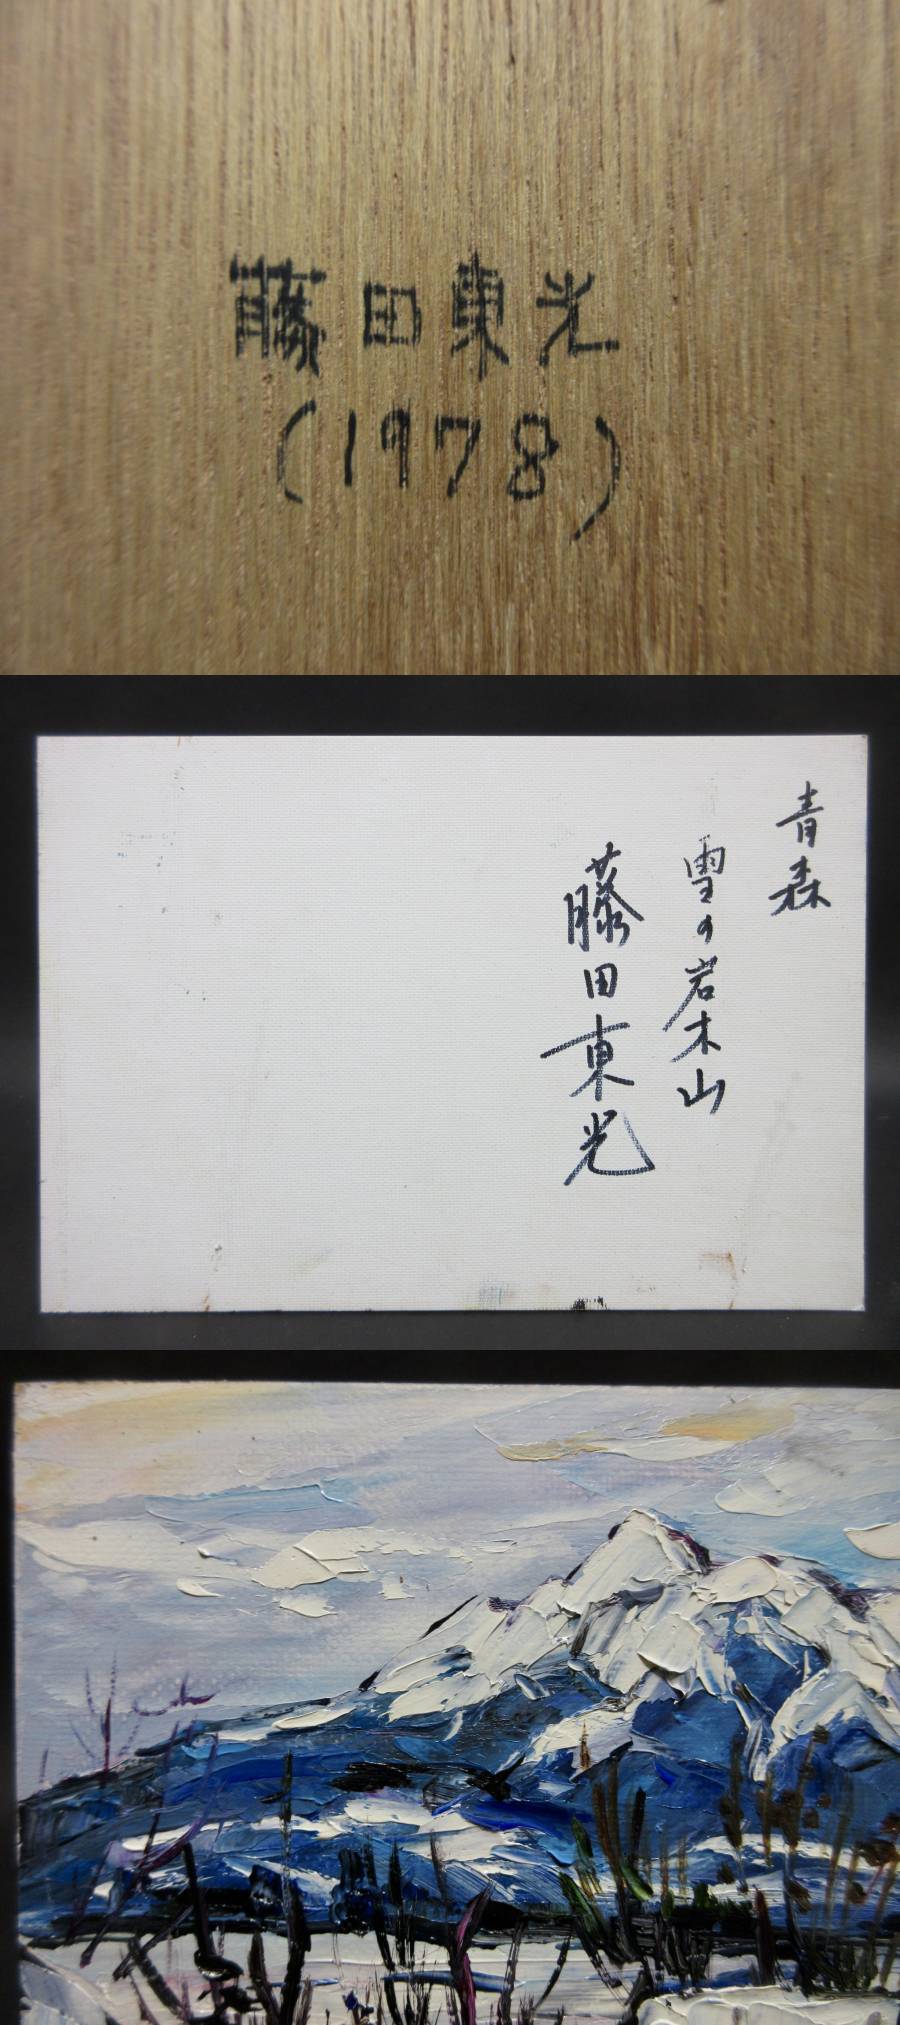 藤田東光
(1978)
青森
雪の岩木山
藤田東光